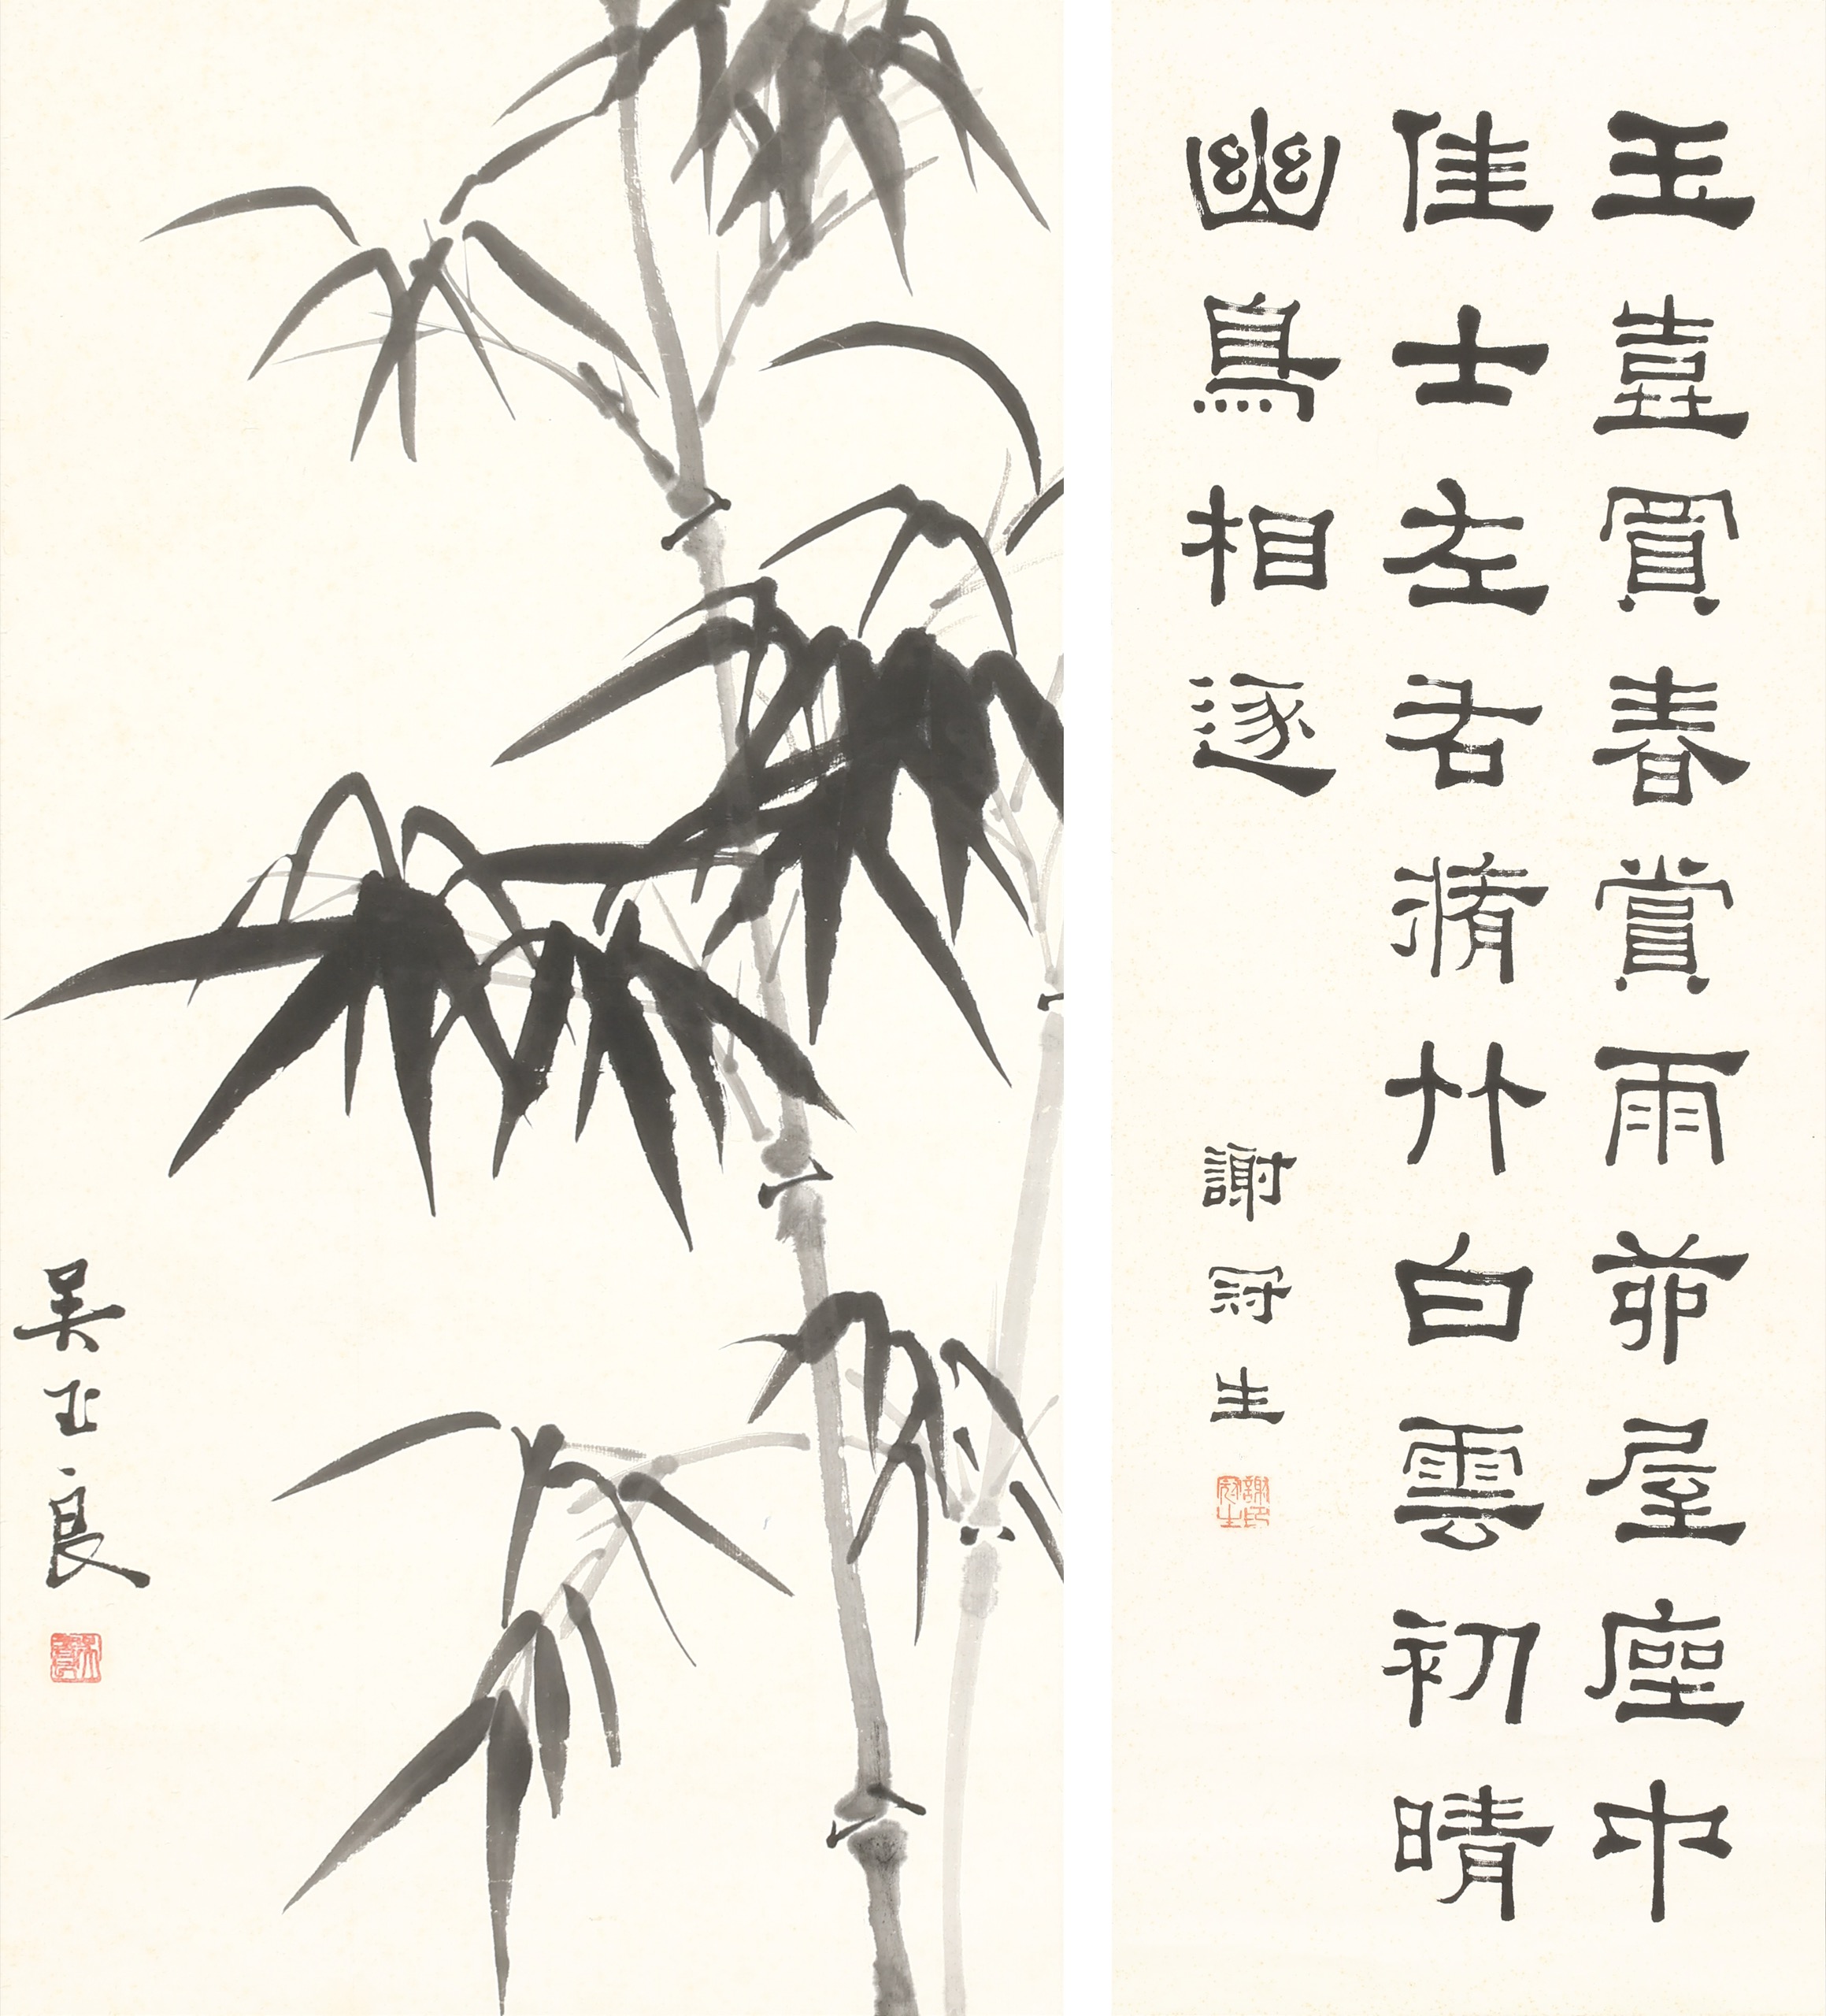 玉壺買春賞雨茆屋座中
佳士左右脩竹白雲初晴
幽鳥相逐
謝冠生
謝印冠生
吳玉良